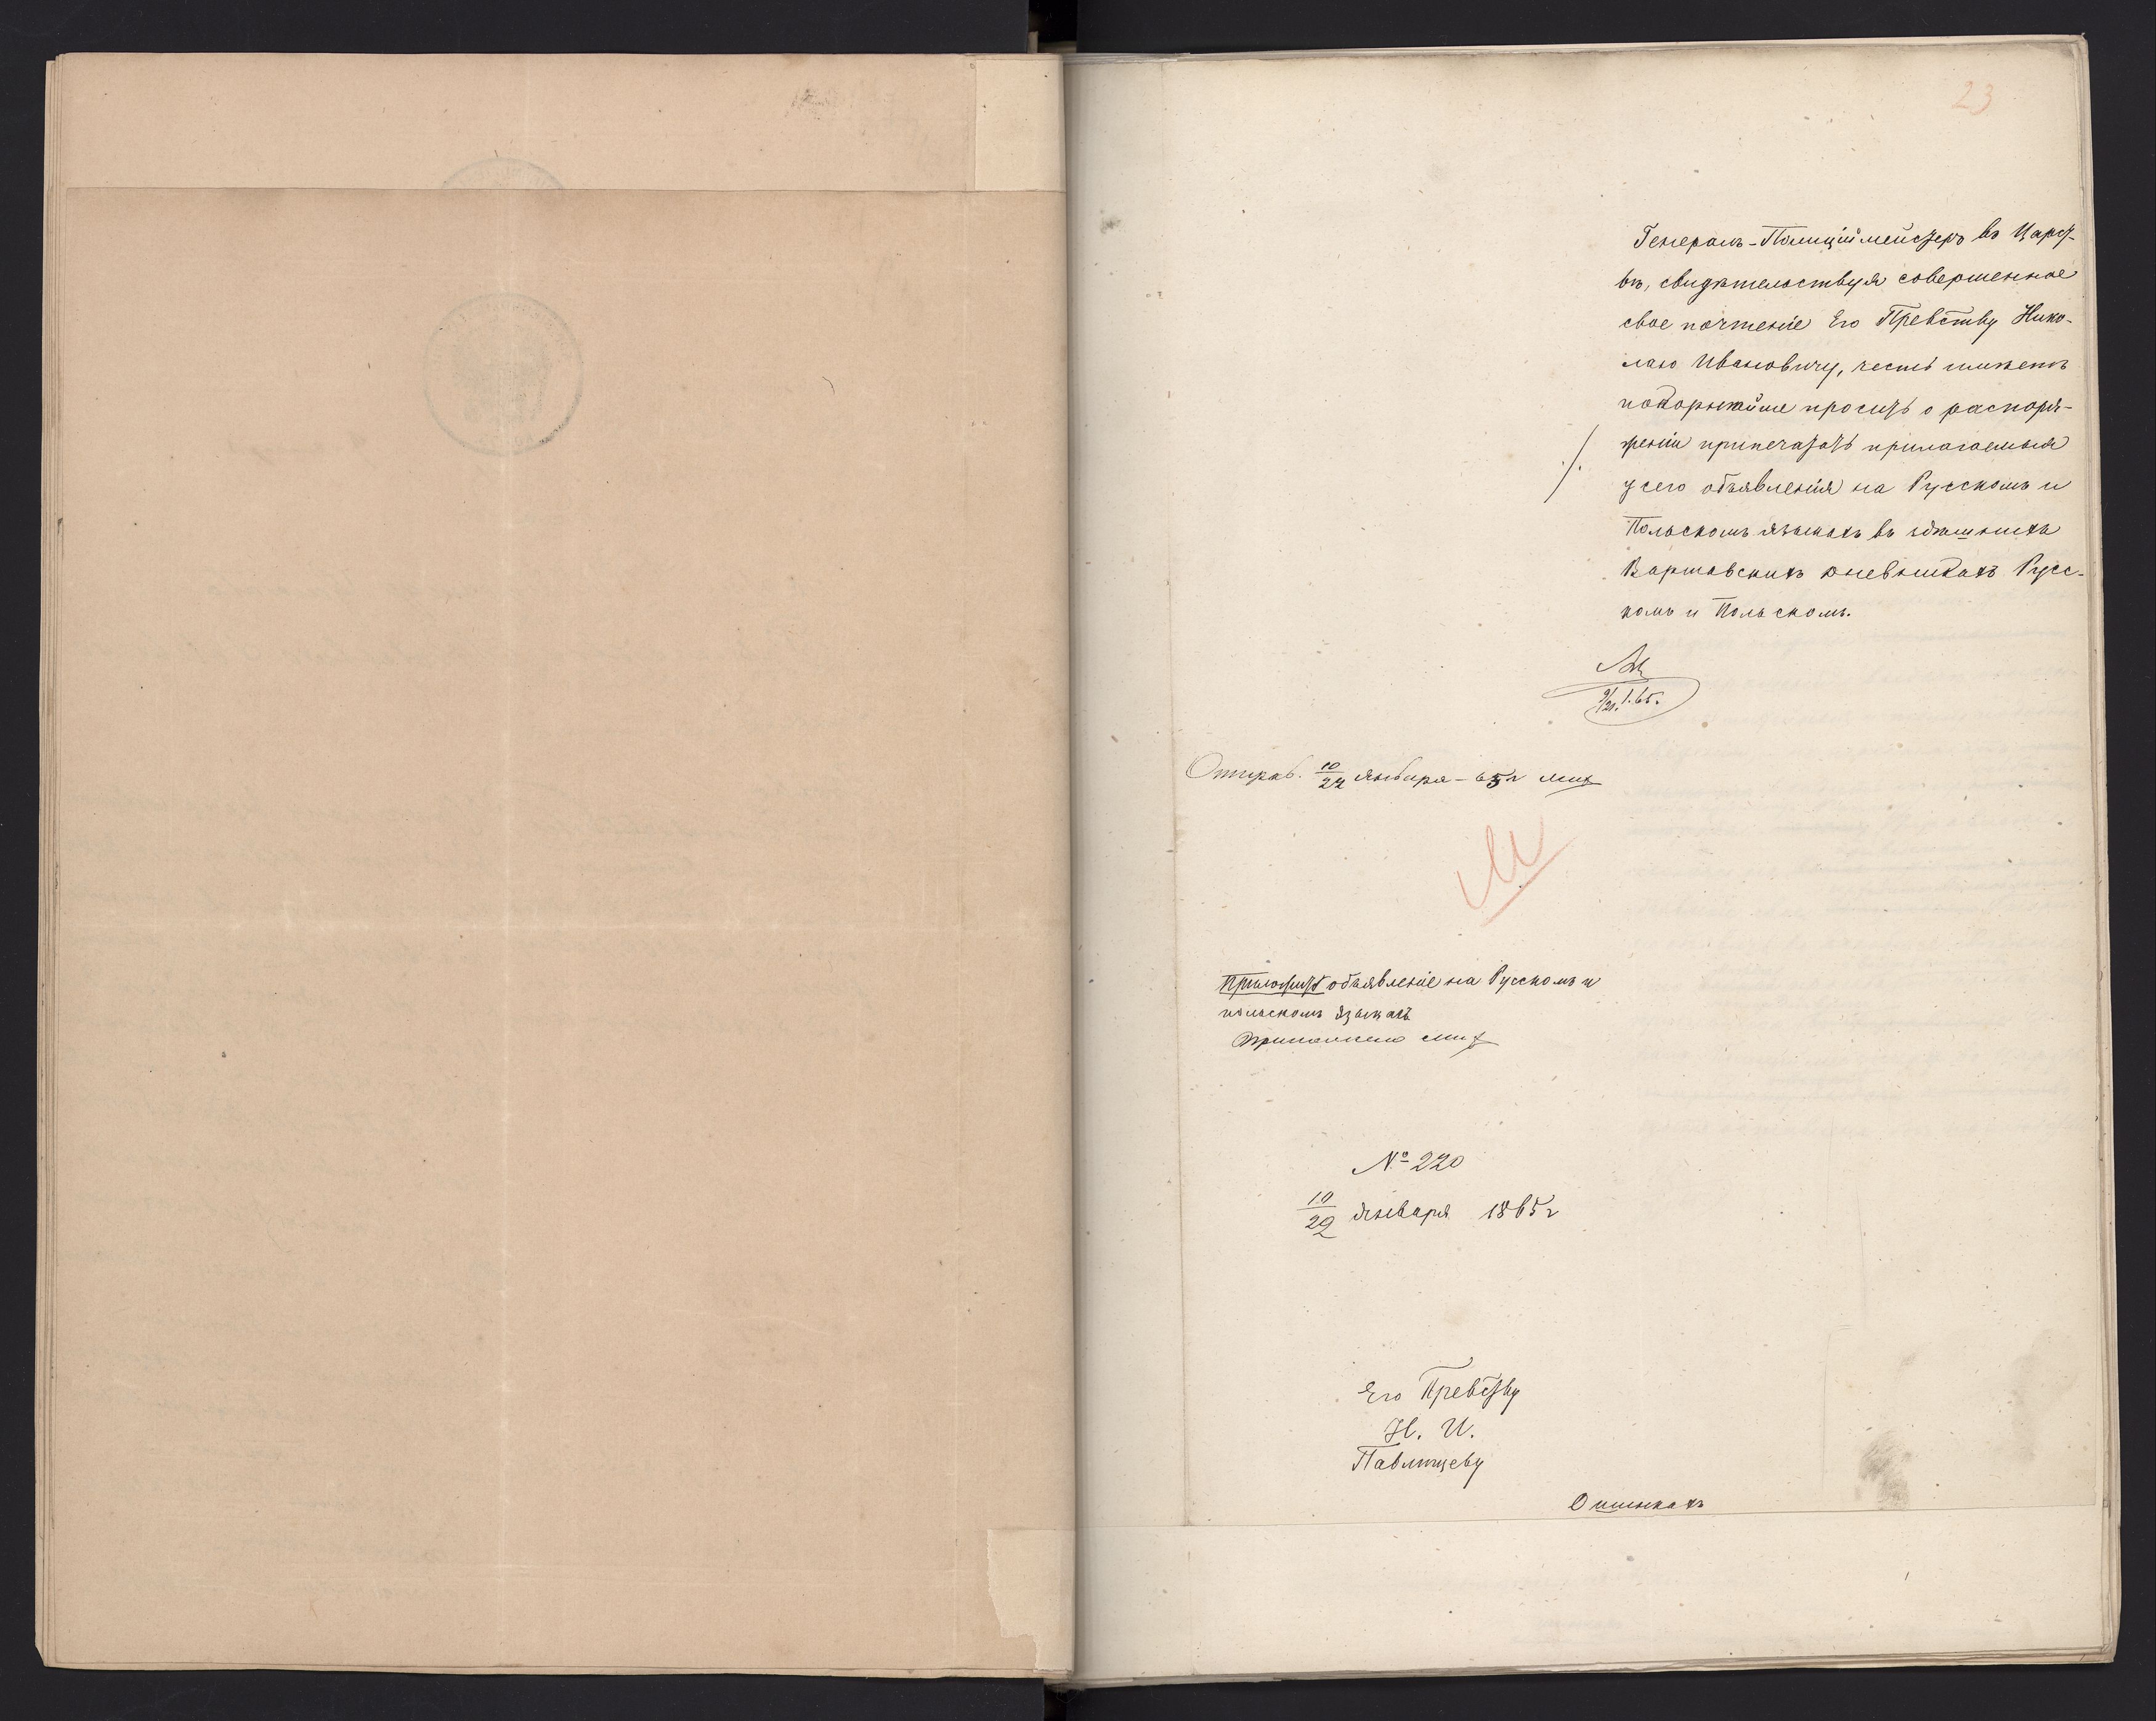 23
Генералъ-Полиціймейстеръ въ Царст-
вѣ, свидѣтельствуя совершенное
свое почтеніе Его Превству Нико-
лаю Ивановичу, честь имѣетъ
покорнѣйше просить о распоря-
женіи припечатать прилагаемыя
у сего объявленія на Русскомъ и
Польскомъ языкахъ въ здѣшнихъ
Варшавскихъ дневникахъ Русс-
комъ и Польскомъ.
9/21. I. 65.
Отправ. 10/22 января - 65 г
Приложить объявленіе на Русскомъ и
польскомъ языкахъ
№ 220
10/22 января 1865 г
Его Превству
Н. И.
Павлищеву